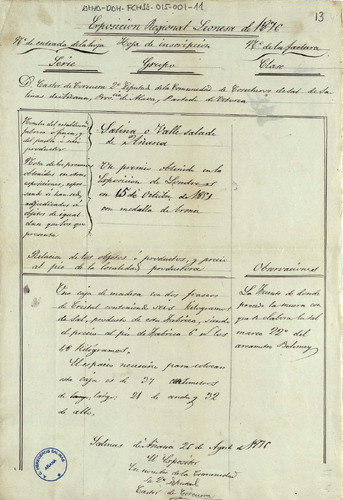 AHAD-DAH-FCHSA-015-001-11
13
Exposicion Regional Lionesa de 1870
Nº de entrada de la hoja Hoja de inscripcion Nº de la factura
Serie Grupo Clase
D. Castor de 2º Diputado de la Comunidad de de Sal de Sa-
linas de Añana, Provª de Alava, Partido de Vitoria
Nombre del
fabrica ó finca, y
del pueblo ó
productor
Salina o Valle salado
de Añana
Nota de los premios
obtenidos en otras
exposiciones,
adjudicados á
objetos de igual
que los que
presenta
Un premio obtenido en la
Exposicion de Londres
en 15 de Octubre de 1851
con medalla de bronce
Relacion de los objetos ó productos, y precio
al pié de la localidad productora
Observaciones
Una caja de madera con dos frascos
de Cristal conteniendo seis kilógramos
de sal, producto de esta Fabrica, siendo
el precio al pié de Fabrica 6 los
kilógramos.
El espacio necesario para colocar
esta caja es de 37 centimetros
de largo, 21 de ancho y 32
de alto.
La fuente de donde
procede la muera con
que se elabora la sal
marca 22º del
areometro
Salinas de Añana 25 de Agosto de 1870
El Expositor
En nombre de la Comunidad
la 2º Diputado
Castor de